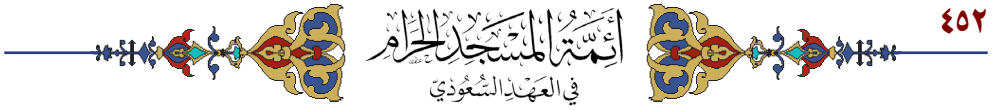 ٤٥٢
أئِمَّةُ المَسْجِدِ الحَرَامِ
فِي العَهْدِ السُّعُودِيّ